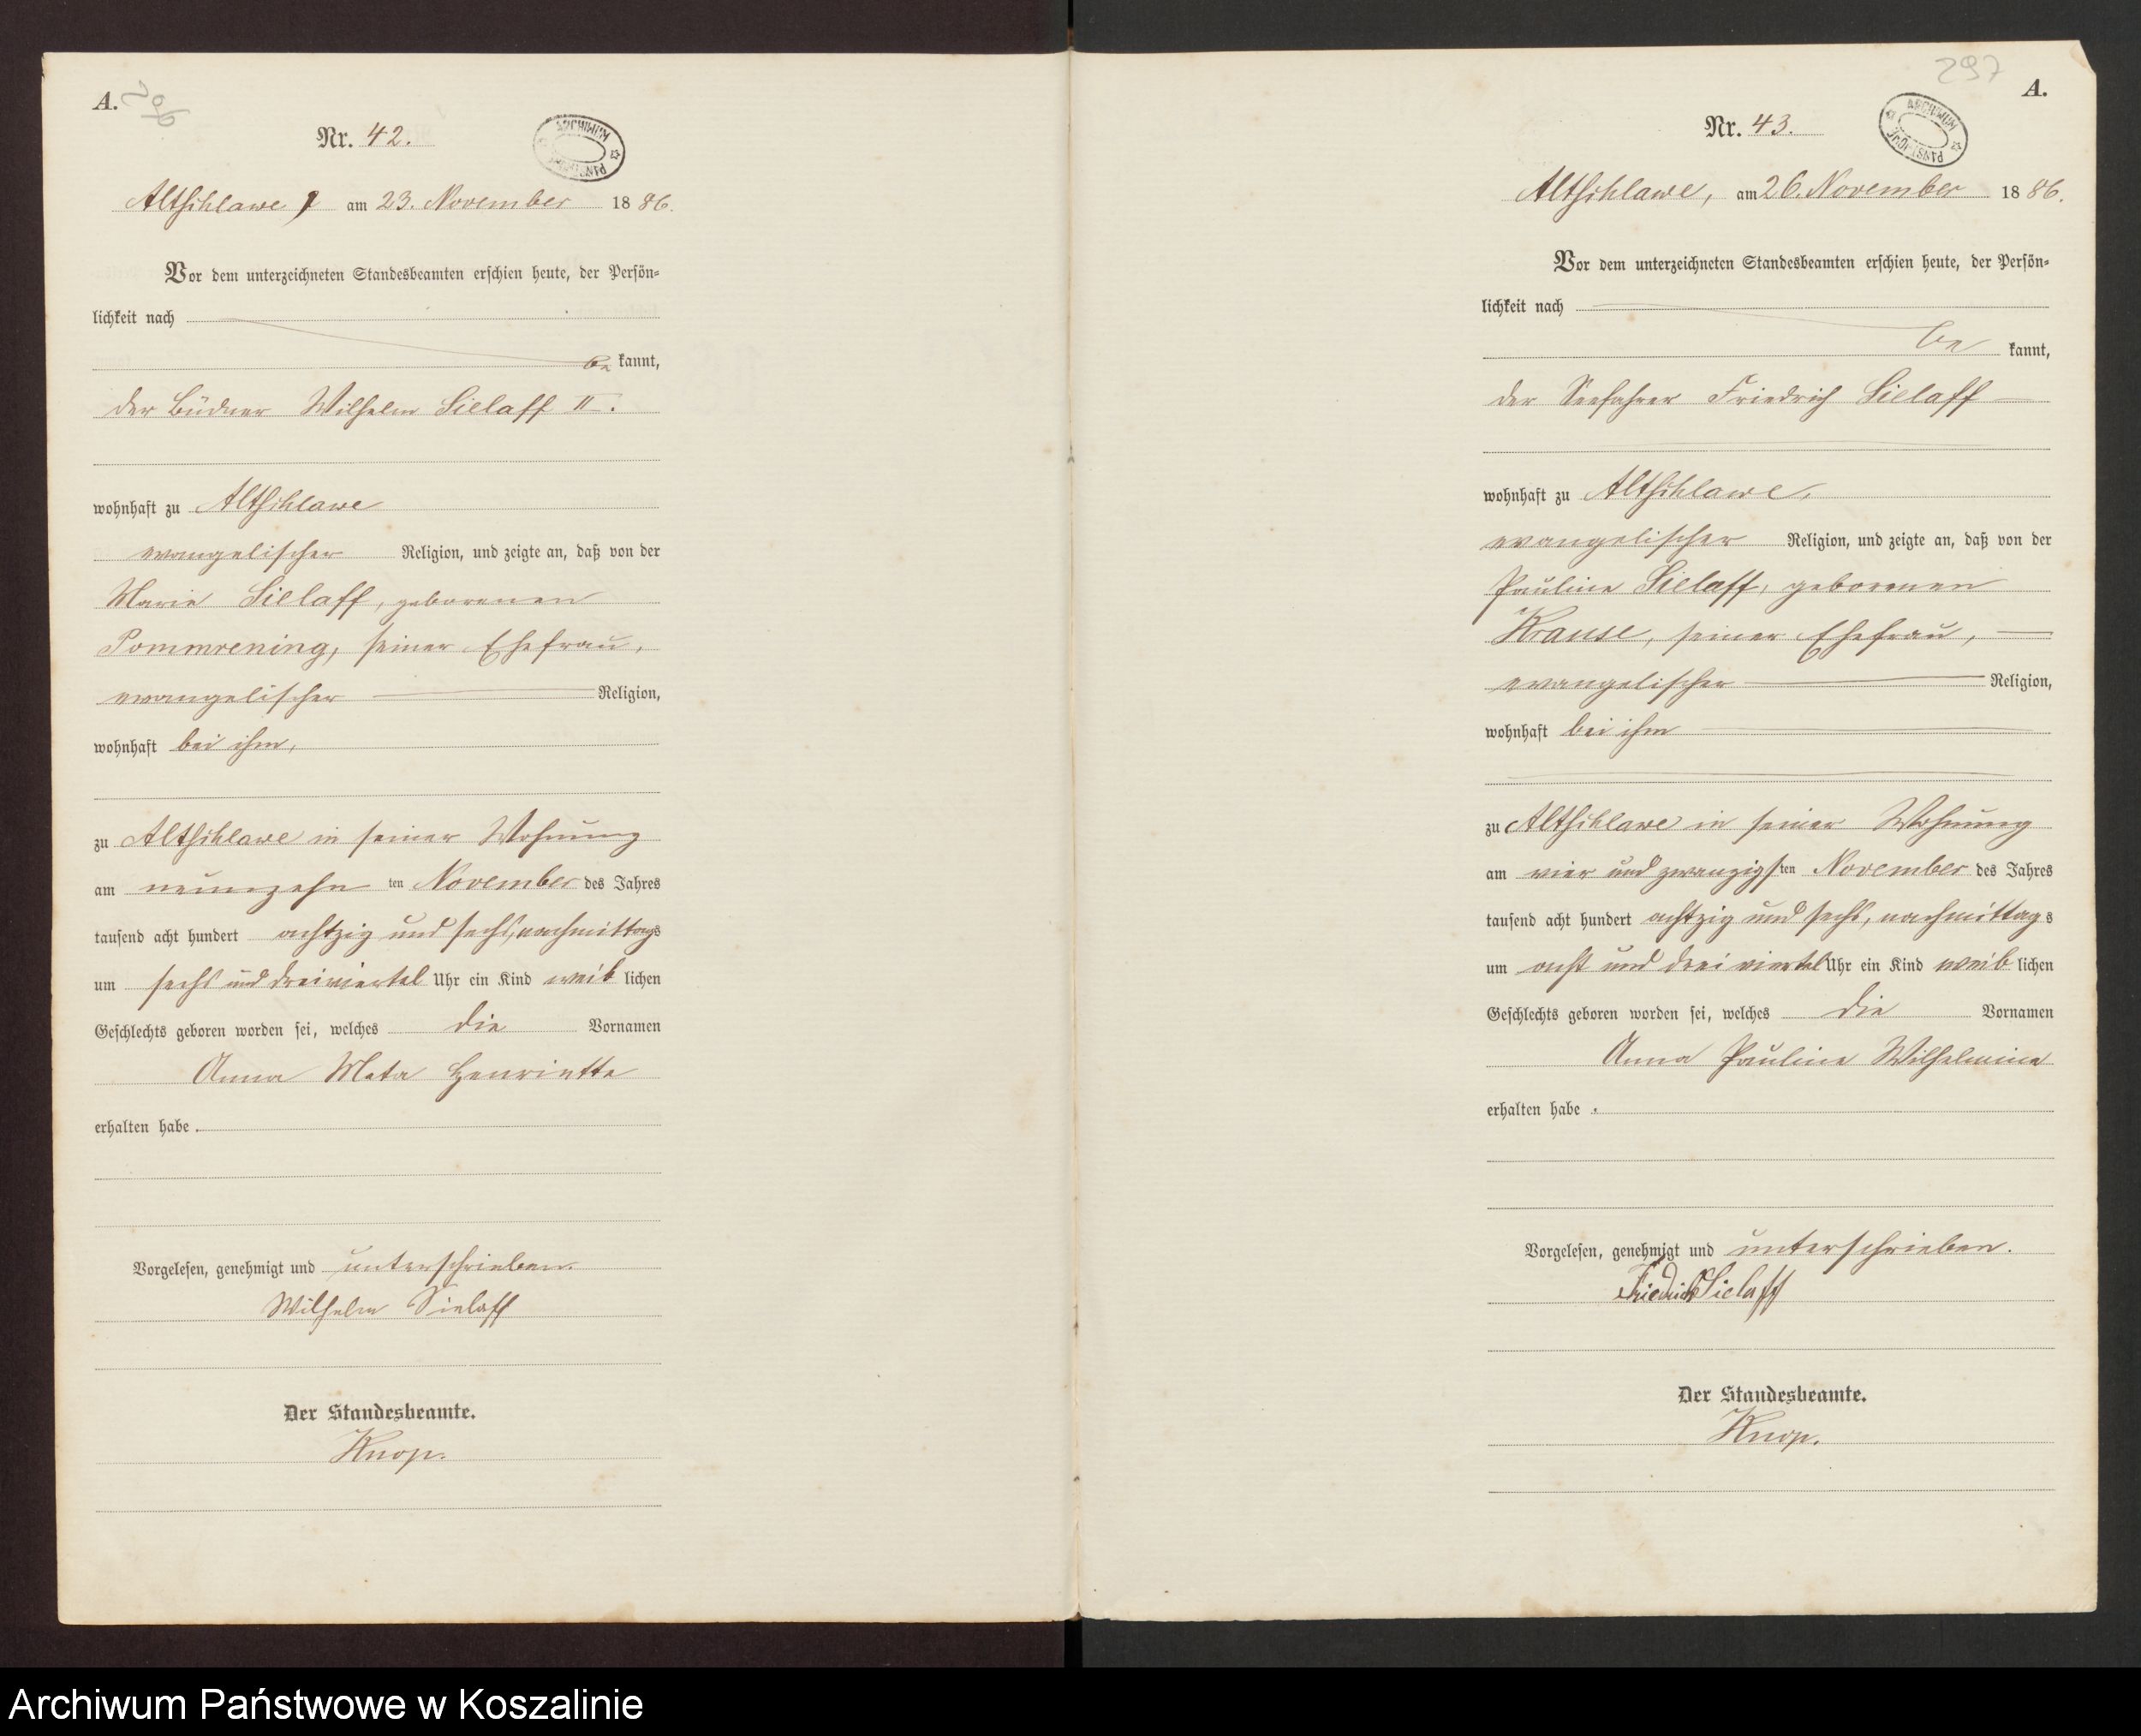 A.
296
Nr. 42.
ARCHIWUM PAŃSTWOWE
Altschlawe, am 23. November 1886.
Vor dem unterzeichneten Standesbeamten erschien heute, der Persön=
lichkeit nach
be kannt,
der Büdner Wilhelm Sielaff II.
wohnhaft zu Altschlawe
evangelischer Religion, und zeigte an, daß von der
Marie Sielaff, geborenen
Pommrening, seiner Ehefrau,
evangelischer Religion,
wohnhaft bei ihm,
zu Altschlawe in seiner Wohnung
am neunzehn ten November des Jahres
tausend acht hundert achtzig und sechs, nachmittags
um sechs und dreiviertel Uhr ein Kind weib lichen
Geschlechts geboren worden sei, welches die Vornamen
Anna Meta Henriette
erhalten habe.
Vorgelesen, genehmigt und unterschrieben.
Wilhelm Sielaff
Der Standesbeamte.
Knop.
297
A.
Nr. 43.
ARCHIWUM PAŃSTWOWE
Altschlawe, am 26. November 1886.
Vor dem unterzeichneten Standesbeamten erschien heute, der Persön=
lichkeit nach
be kannt,
der Seefahrer Friedrich Sielaff
wohnhaft zu Altschlawe,
evangelischer Religion, und zeigte an, daß von der
Pauline Sielaff, geborenen
Krause, seiner Ehefrau,
evangelischer Religion,
wohnhaft bei ihm
zu Altschlawe in seiner Wohnung
am vier und zwanzigsten November des Jahres
tausend acht hundert achtzig und sechs, nachmittags
um acht und drei viertel Uhr ein Kind weib lichen
Geschlechts geboren worden sei, welches die Vornamen
Anna Pauline Wilhelmine
erhalten habe.
Vorgelesen, genehmigt und unterschrieben.
Friedrich Sielaff
Der Standesbeamte.
Knop.
Archiwum Państwowe w Koszalinie